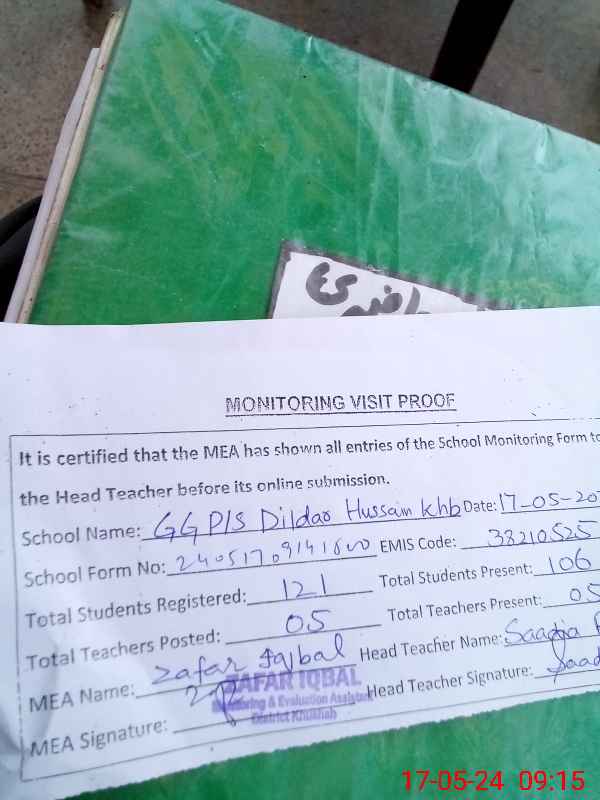 MONITORING VISIT PROOF
It is certified that the MEA has shown all entries of the School Monitoring Form to
the Head Teacher before its online submission.
School Name: GGP/S Dildar Hussain Khb Date: 17-05-20
School Form No: 24051709141600 EMIS Code: 38210525
Total Students Registered: 121 Total Students Present: 106
Total Teachers Posted: 05 Total Teachers Present: 05
MEA Name: Zafar Iqbal Head Teacher Name: Saadia
MEA Signature: Head Teacher Signature: Saad
ZAFAR IQBAL
Monitoring & Evaluation Assistant
District Khushab
17-05-24 09:15